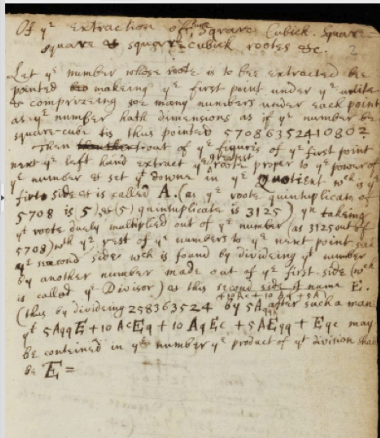 Of yᵉ extraction of yᵉ Square Cubick. Square-
square & square-cubick rootes &c. 2
Let yᵉ number whose roote is to bee extracted be
pointed makeing yᵉ first point under yᵉ unite
& comprizeing soe many numbers under each point
as yᵉ number hath dimensions as if yᵉ number be
square-cube tis thus pointed 5708635241 0802
Then out of yᵉ figures of yᵉ first point
next yᵉ left hand extract yᵉ greatest roote proper to yᵉ power of
yᵉ number & set yᵗ downe in yᵉ Quotient wᶜʰ is yᵉ
first side & is called A. (as yᵉ roote quintuplicate of
5708 is 5) & (5) quintuplicate is 3125) yⁿ takeing
yᵗ roote duely multiplied out of yᵉ number (as 3125 out of
5708) wᵗʰ yᵉ rest of yᵉ numbers to yᵉ next point
yᵉ second side wᶜʰ is found by divideing yᵗ number
by another number made out of yᵉ first side (wᶜʰ
is called yᵉ Divisor) as this second side I name E.
(thus by divideing 258363524 by 5Aqq + 10Ac + 10Aq + 5A) after such a man
yᵗ 5AqqE + 10AcEq + 10AqEc + 5AEqq + Eqc may
be conteined in yᵉ number yᵉ product of yᵗ division shall
be E =